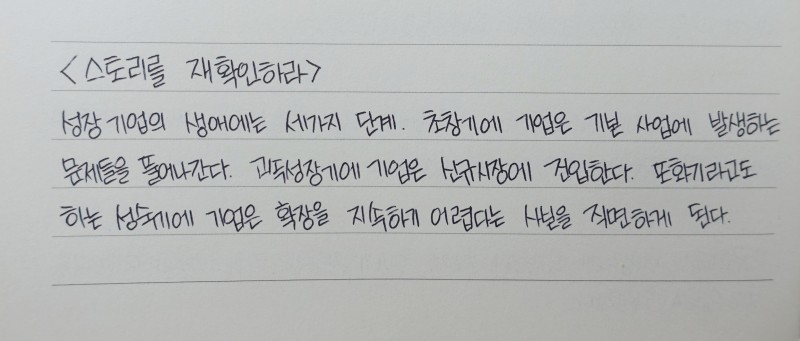 <스토리를 재확인하라>
성장기업의 생애에는 세가지 단계. 초창기에 기업은 기본 사업에 발생하는
문제들을 풀어나간다. 고속성장기에 기업은 신규시장에 진입한다. 포화기라고도
하는 성숙기에 기업은 확장을 지속하기 어렵다는 사실을 직면하게 된다.